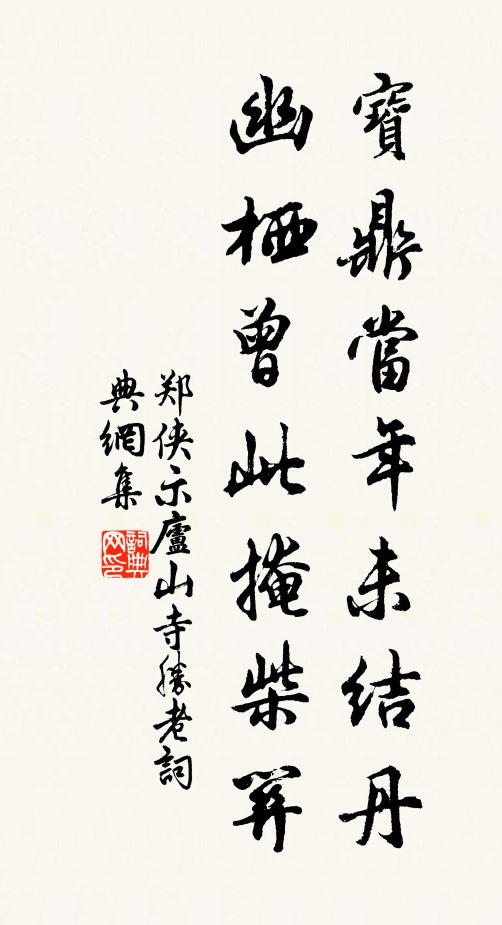 寶鼎當年未結丹
幽栖曾此掩柴關
郑侠示廬山寺勝老詞
典網集
詞典
网印